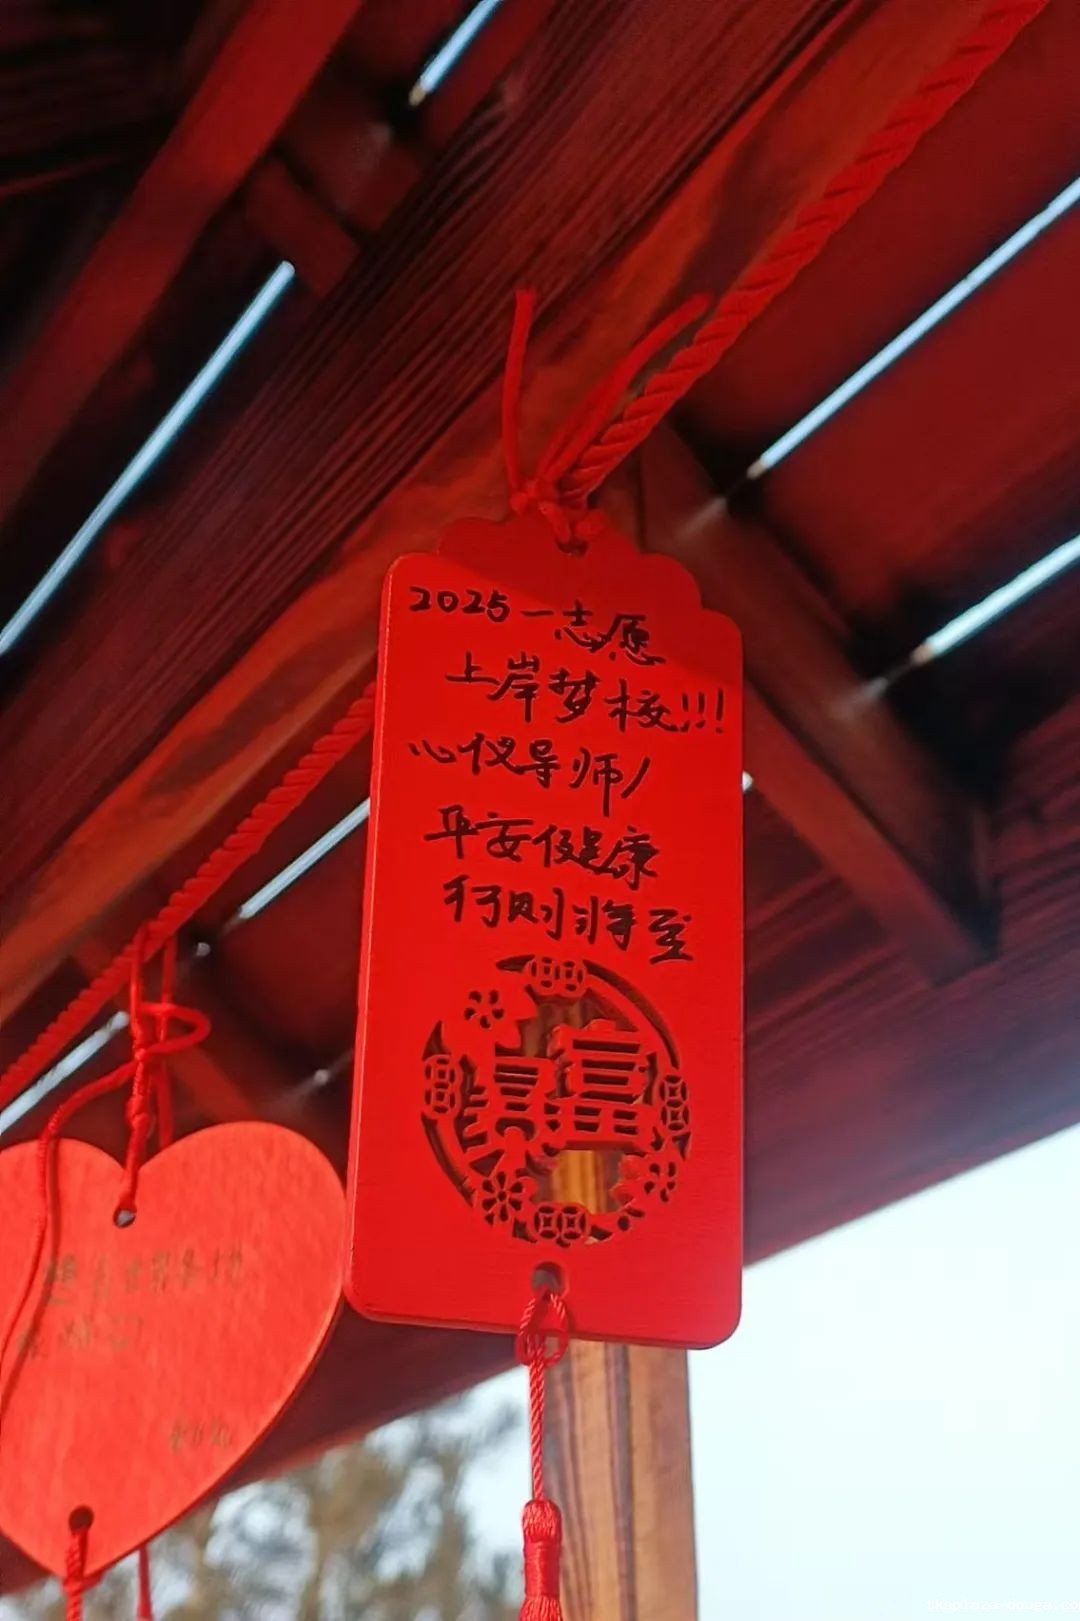 2025一志愿
上岸梦校!!!
心仪导师/
平安健康
行则将至